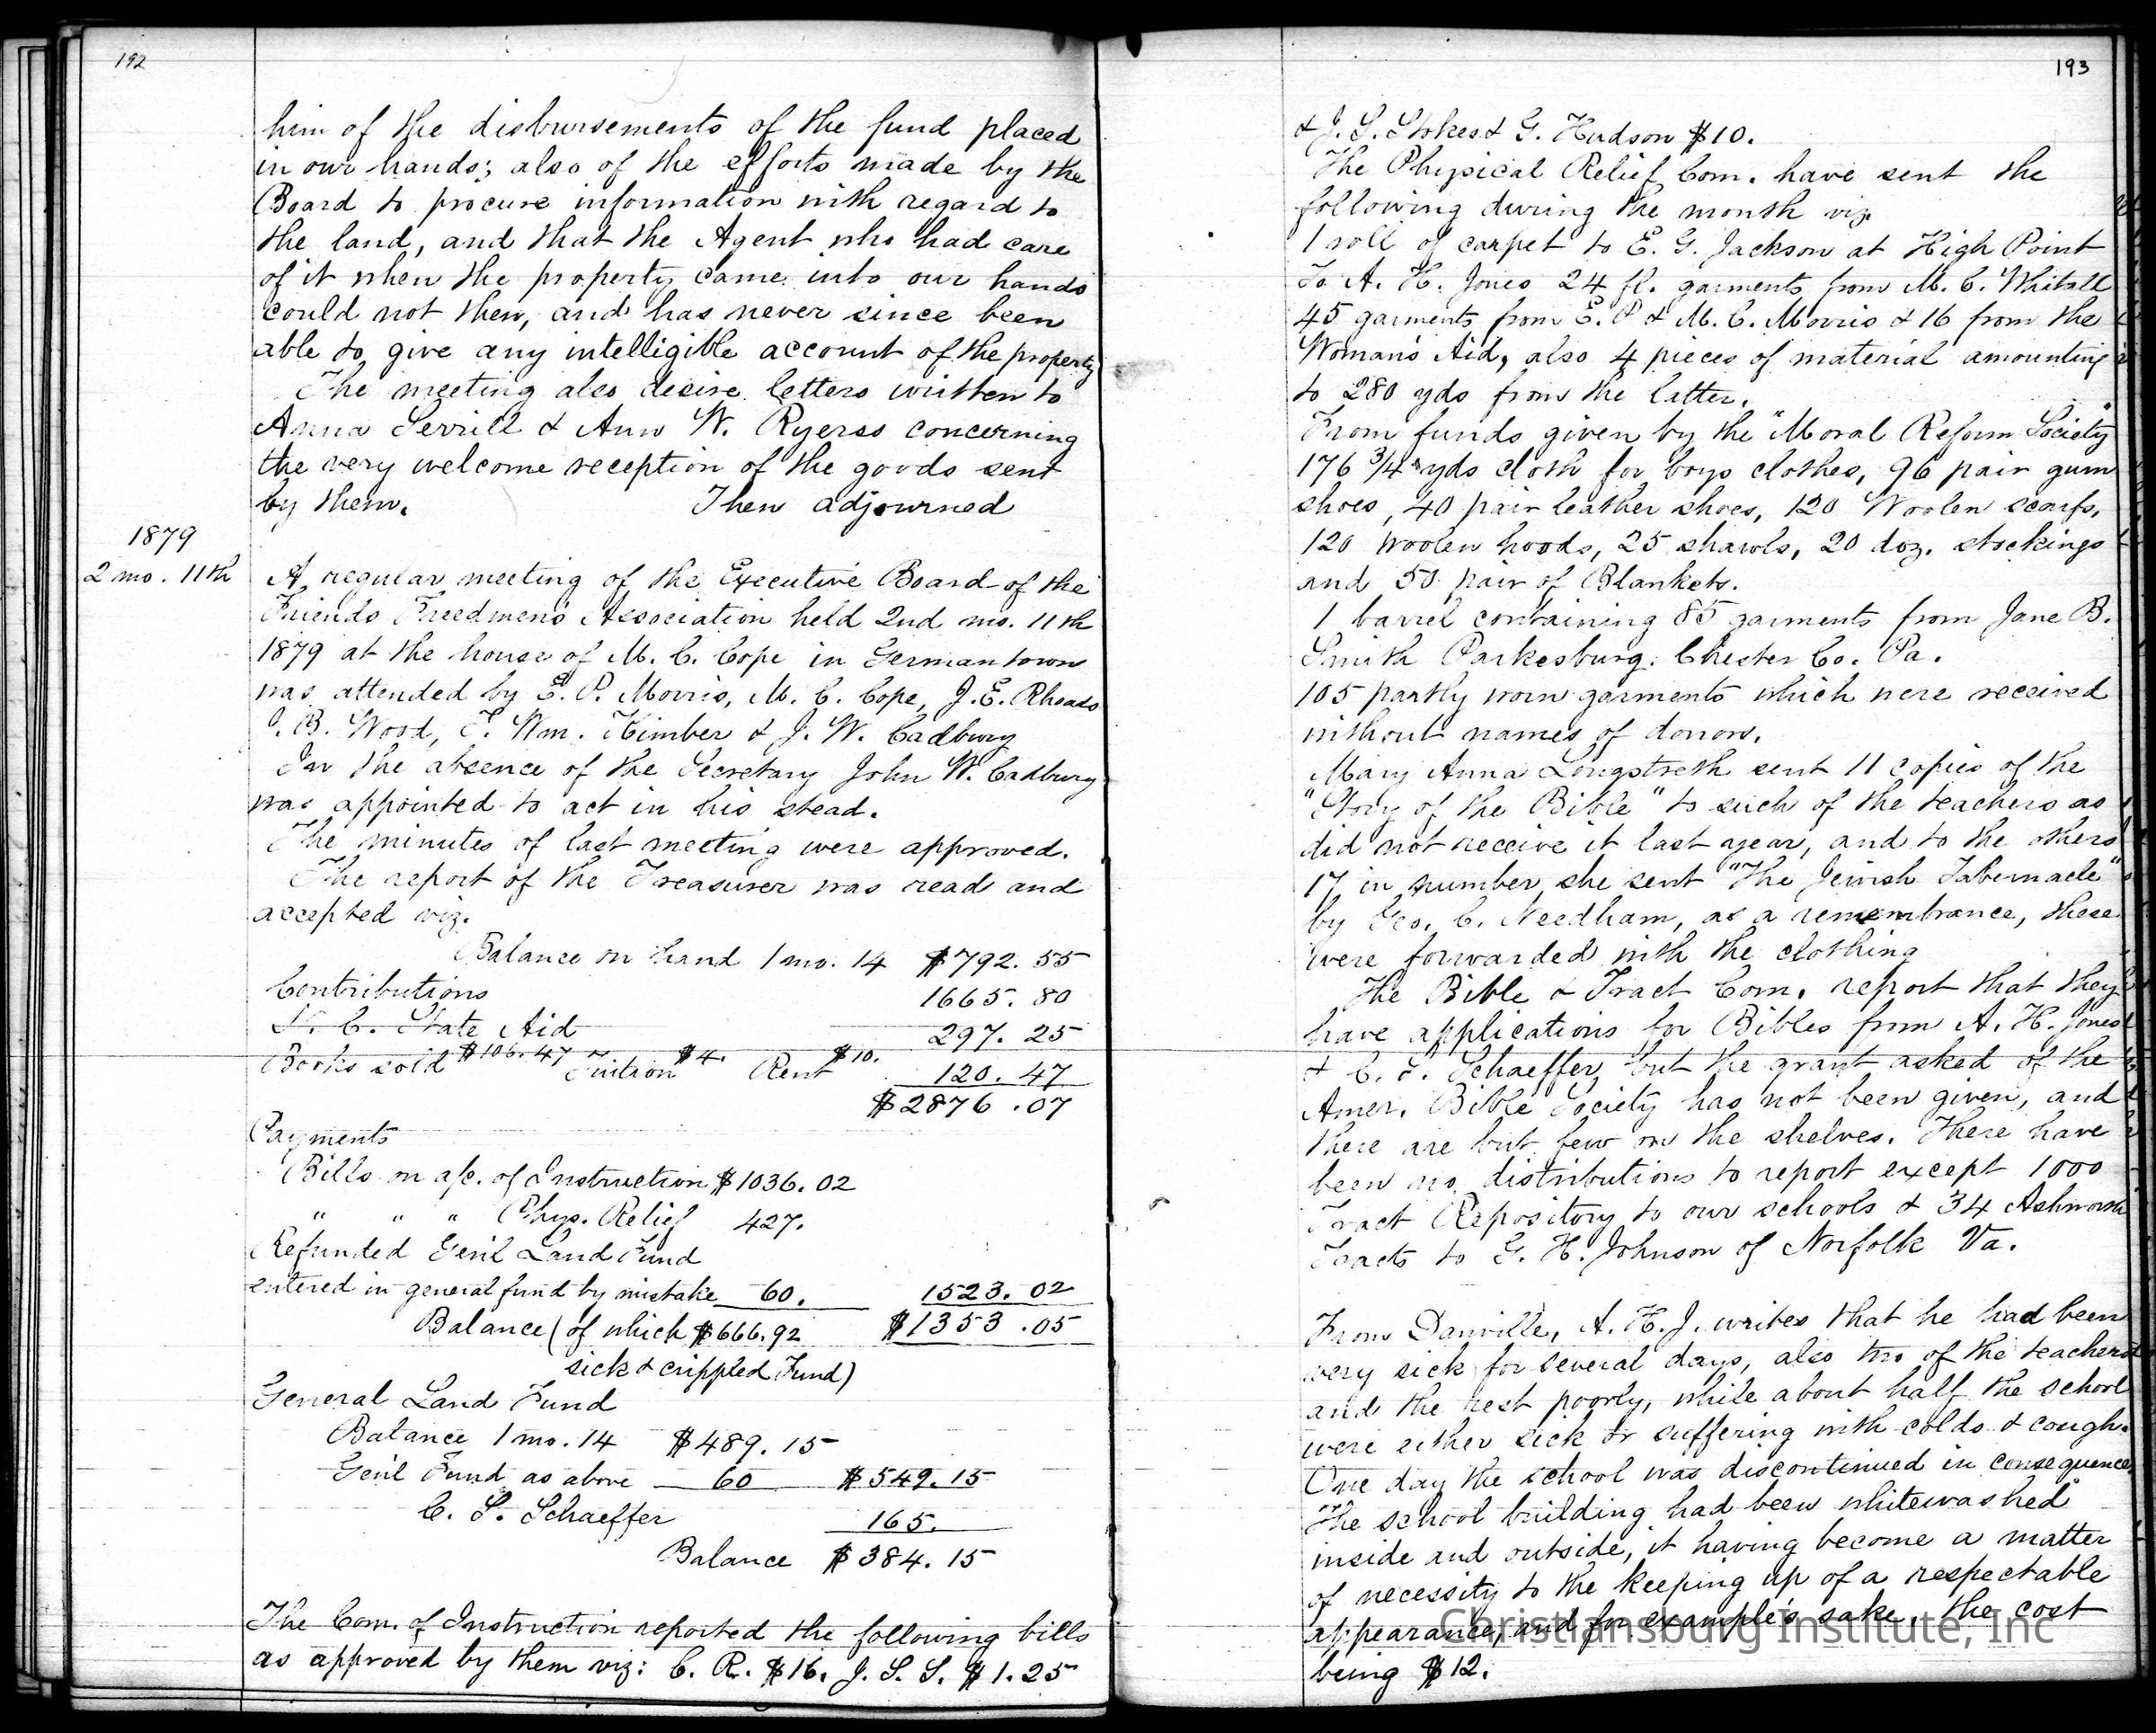 192
him of the disbursements of the fund placed
in our hands; also of the efforts made by the
Board to procure information with regard to
the land, and that the Agent who had care
of it when the property came into our hands
could not then, and has never since been
able to give any intelligible account of the property
The meeting also desire letters written to
Anna Serrill & Ann W. Ryerss concerning
the very welcome reception of the goods sent
by them. Then adjourned
1879
2 mo. 11th
A regular meeting of the Executive Board of the
Friends Freedmen's Association held 2nd mo. 11th
1879 at the house of M. C. Cope in Germantown
was attended by E. P. Morris, M. C. Cope, J. E. Rhoads
J. B. Wood, T. Wm. Kimber & J. W. Cadbury
In the absence of the Secretary John W. Cadbury
was appointed to act in his stead.
The minutes of last meeting were approved.
The report of the Treasurer was read and
accepted viz.
Balance on hand 1 mo. 14 $792.55
Contributions 1665.80
N. C. State Aid 297.25
Books sold $106.47 Tuition $4. Rent $10. 120.47
$2876.07
Payments
Bills on a/c. of Instruction $1036.02
" " " Phys. Relief 427.
Refunded Gen'l Land Fund
entered in general fund by mistake 60. 1523.02
Balance (of which $666.92 $1353.05
sick & crippled Fund)
General Land Fund
Balance 1 mo. 14 $489.15
Gen'l Fund as above 60 $549.15
C. S. Schaeffer 165.
Balance $384.15
The Com. of Instruction reported the following bills
as approved by them viz: C. R. $16. J. S. S. $1.25
193
& J. S. Stokes & G. Hudson $10.
The Physical Relief Com. have sent the
following during the month viz.
1 roll of carpet to E. G. Jackson at High Point
To A. H. Jones 24 fl. garments from M. C. Whitall
45 garments from E. P & M. C. Morris & 16 from the
Woman's Aid, also 4 pieces of material amounting
to 280 yds from the latter.
From funds given by the "Moral Reform Society"
176 3/4 yds cloth for boys clothes, 96 pair gum
shoes, 40 pair leather shoes, 120 Woolen scarfs,
120 woolen hoods, 25 shawls, 20 doz. stockings
and 50 pair of Blankets.
1 barrel containing 85 garments from Jane B.
Smith Parkesburg. Chester Co. Pa.
105 partly worn garments which were received
without names of donors.
Mary Anna Longstreth sent 11 copies of the
"Story of the Bible" to such of the teachers as
did not receive it last year, and to the others
17 in number she sent "The Jewish Tabernacle"
by Geo. C. Needham, as a remembrance, these
were forwarded with the clothing
The Bible & Tract Com. report that they
have applications for Bibles from A. H. Jones
& C. S. Schaeffer, but the grant asked of the
Amer. Bible Society has not been given, and
there are but few on the shelves. There have
been no distributions to report except 1000
Tract Repository to our schools & 34 Ashworth
Tracts to G. H. Johnson of Norfolk Va.
From Danville, A. H. J. writes that he had been
very sick for several days, also two of the teachers
and the rest poorly, while about half the school
were either sick or suffering with colds & cough.
One day the school was discontinued in consequence.
The school building had been whitewashed
inside and outside, it having become a matter
of necessity to the keeping up of a respectable
appearance, and for example's sake, the cost
being $12.
Christiansburg Institute, Inc